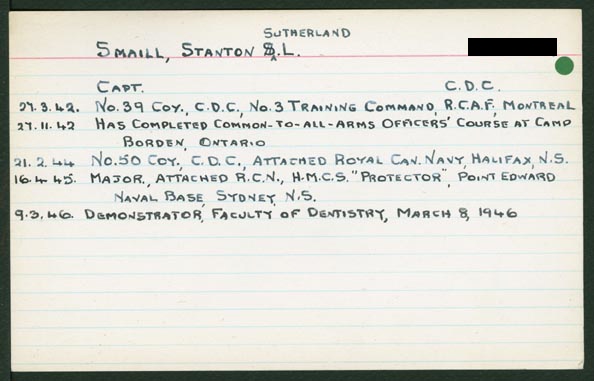 SUTHERLAND
SMAILL, STANTON S.L.
CAPT. C.D.C.
27.3.42. NO.39 COY., C.D.C., NO.3 TRAINING COMMAND, R.C.A.F., MONTREAL
27.11.42 HAS COMPLETED COMMON-TO-ALL-ARMS OFFICERS' COURSE AT CAMP
BORDEN, ONTARIO
21.2.44 NO.50 COY., C.D.C., ATTACHED ROYAL CAN. NAVY, HALIFAX, N.S.
16.4.45. MAJOR, ATTACHED R.C.N., H.M.C.S. "PROTECTOR", POINT EDWARD
NAVAL BASE, SYDNEY, N.S.
9.3.46. DEMONSTRATOR, FACULTY OF DENTISTRY, MARCH 8, 1946